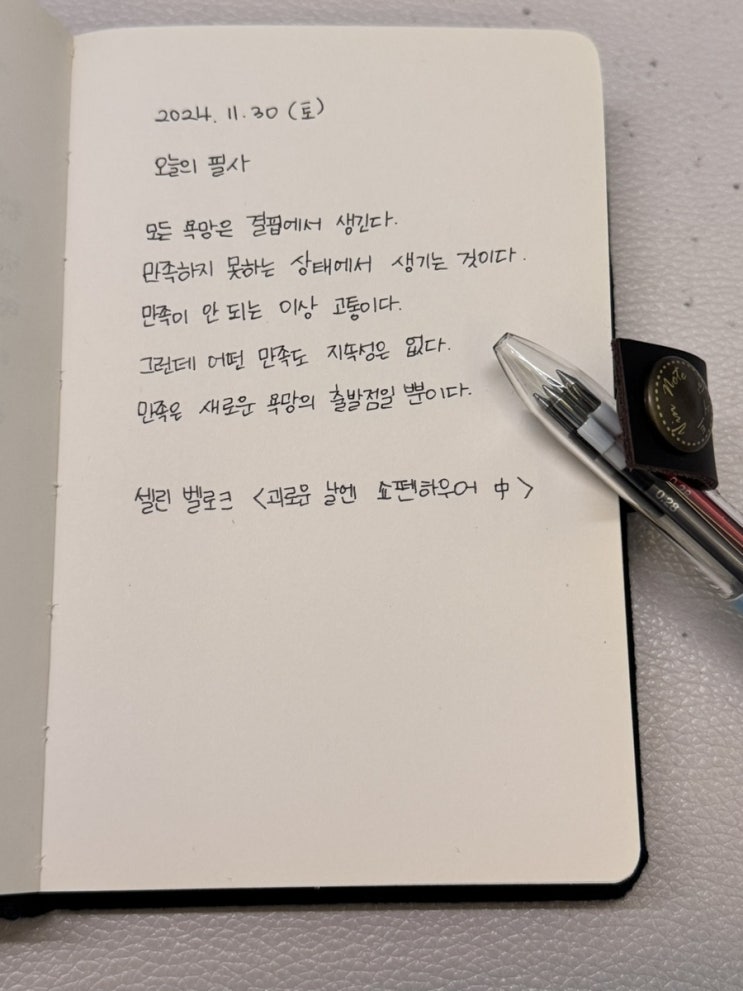 2024. 11. 30 (토)
오늘의 필사
모든 욕망은 결핍에서 생긴다.
만족하지 못하는 상태에서 생기는 것이다.
만족이 안 되는 이상 고통이다.
그런데 어떤 만족도 지속성은 없다.
만족은 새로운 욕망의 출발점일 뿐이다.
셀린 벨로크 <괴로운 날엔 쇼펜하우어 中>
Von Note
0.28